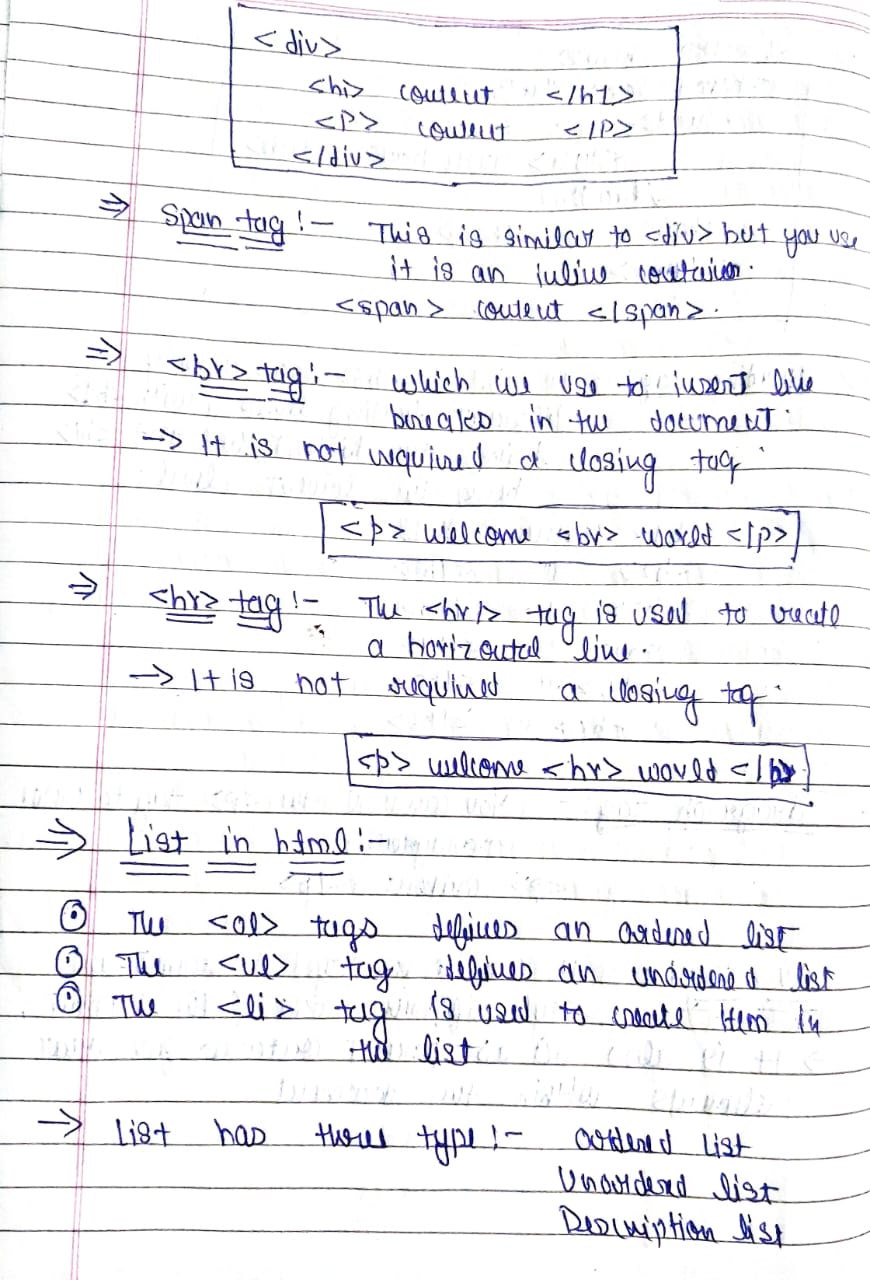 <div>
<h1> content </h1>
<P> content </P>
</div>
⇒ Span tag :- This is similar to <div> but you use
it is an inline container.
<span> content </span>.
⇒ <br> tag :- which we use to insert line
breaks in the document.
→ It is not required a closing tag.
<p> welcome <br> world </p>
⇒ <hr> tag :- The <hr/> tag is used to create
a horizontal line.
→ It is not required a closing tag.
<p> welcome <hr> world </p>
⇒ List in html :-
The <ol> tags defines an ordered list
The <ul> tag defines an unordered list
The <li> tag is used to create item in
the list.
→ List has three type :- ordered List
Unordered list
Description list